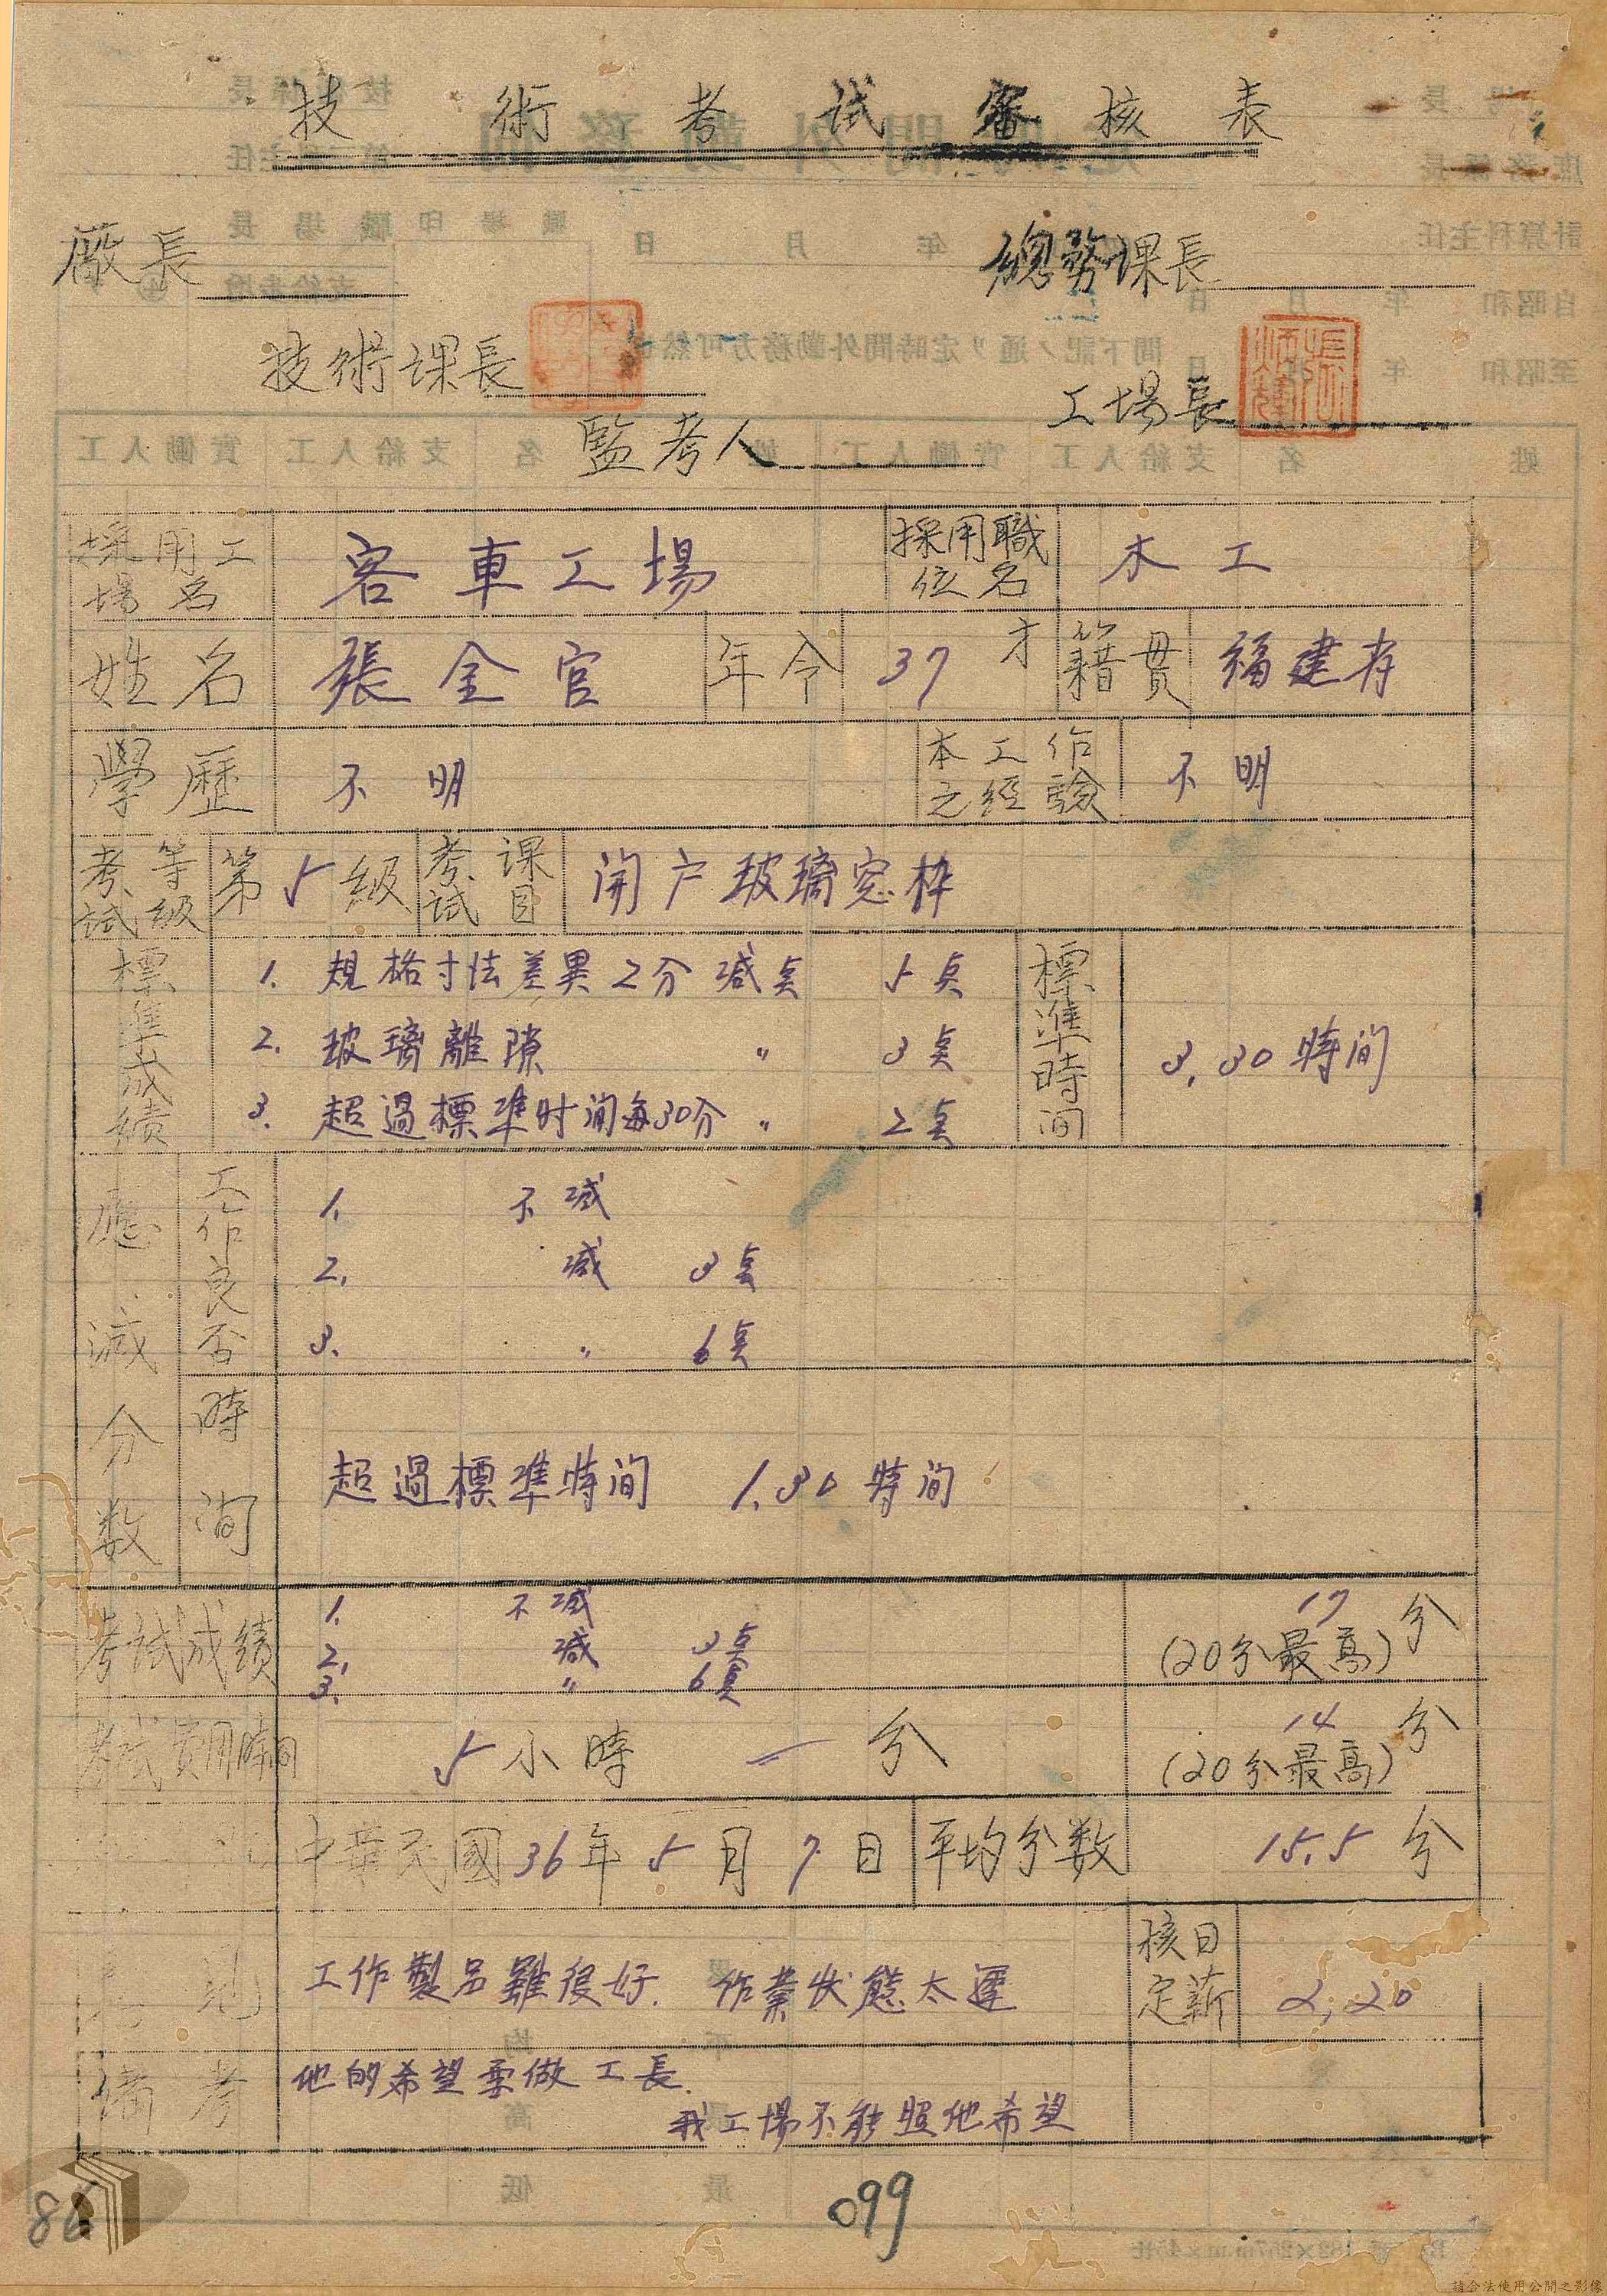 技術考試審核表
廠長 總務課長
技術課長 工場長
監考人
採用工場名 客車工場 採用職位名 木工
姓名 張金官 年令 37才 籍貫 福建省
學歷 不明 本工作之經驗 不明
考試等級 第5級 考試課目 開户玻璃窓枠
標準成績 1. 規格寸法差異2分 减点 5点 標準時间 3.30時间
2. 玻璃離隙 〃 3点
3. 超過標準时间每30分 〃 2点
應減分数 工作良否 1. 不减
2. 减 3点
3. 〃 6点
時间 超過標準時间 1.30時间
考試成績 1. 不减 17分
2. 减 3点 (20分最高)
3. 〃 6点
考試費用時间 5小時 — 分 14分
(20分最高)
中華民國36年5月7日 平均分数 15.5分
工作製品雖很好. 作業狀態太遲 核定日薪 2.20
備考 他的希望要做工長.
我工場不能照他希望
099
86
請合法使用公開之影像